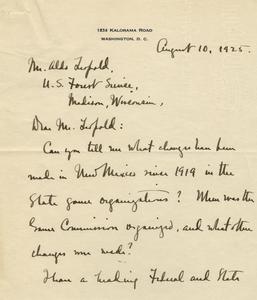 1834 KALORAMA ROAD
WASHINGTON, D. C.
August 10, 1925.
Mr. Aldo Leopold,
U. S. Forest Service,
Madison, Wisconsin,
Dear Mr. Leopold:
Can you tell me what changes have been
made in New Mexico since 1919 in the
State game organizations? When was the
Game Commission organized, and what other
changes were made?
I have a Federal and State